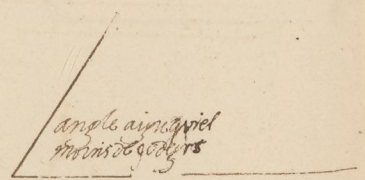 angle aigu qui est
moins de 90 degrs